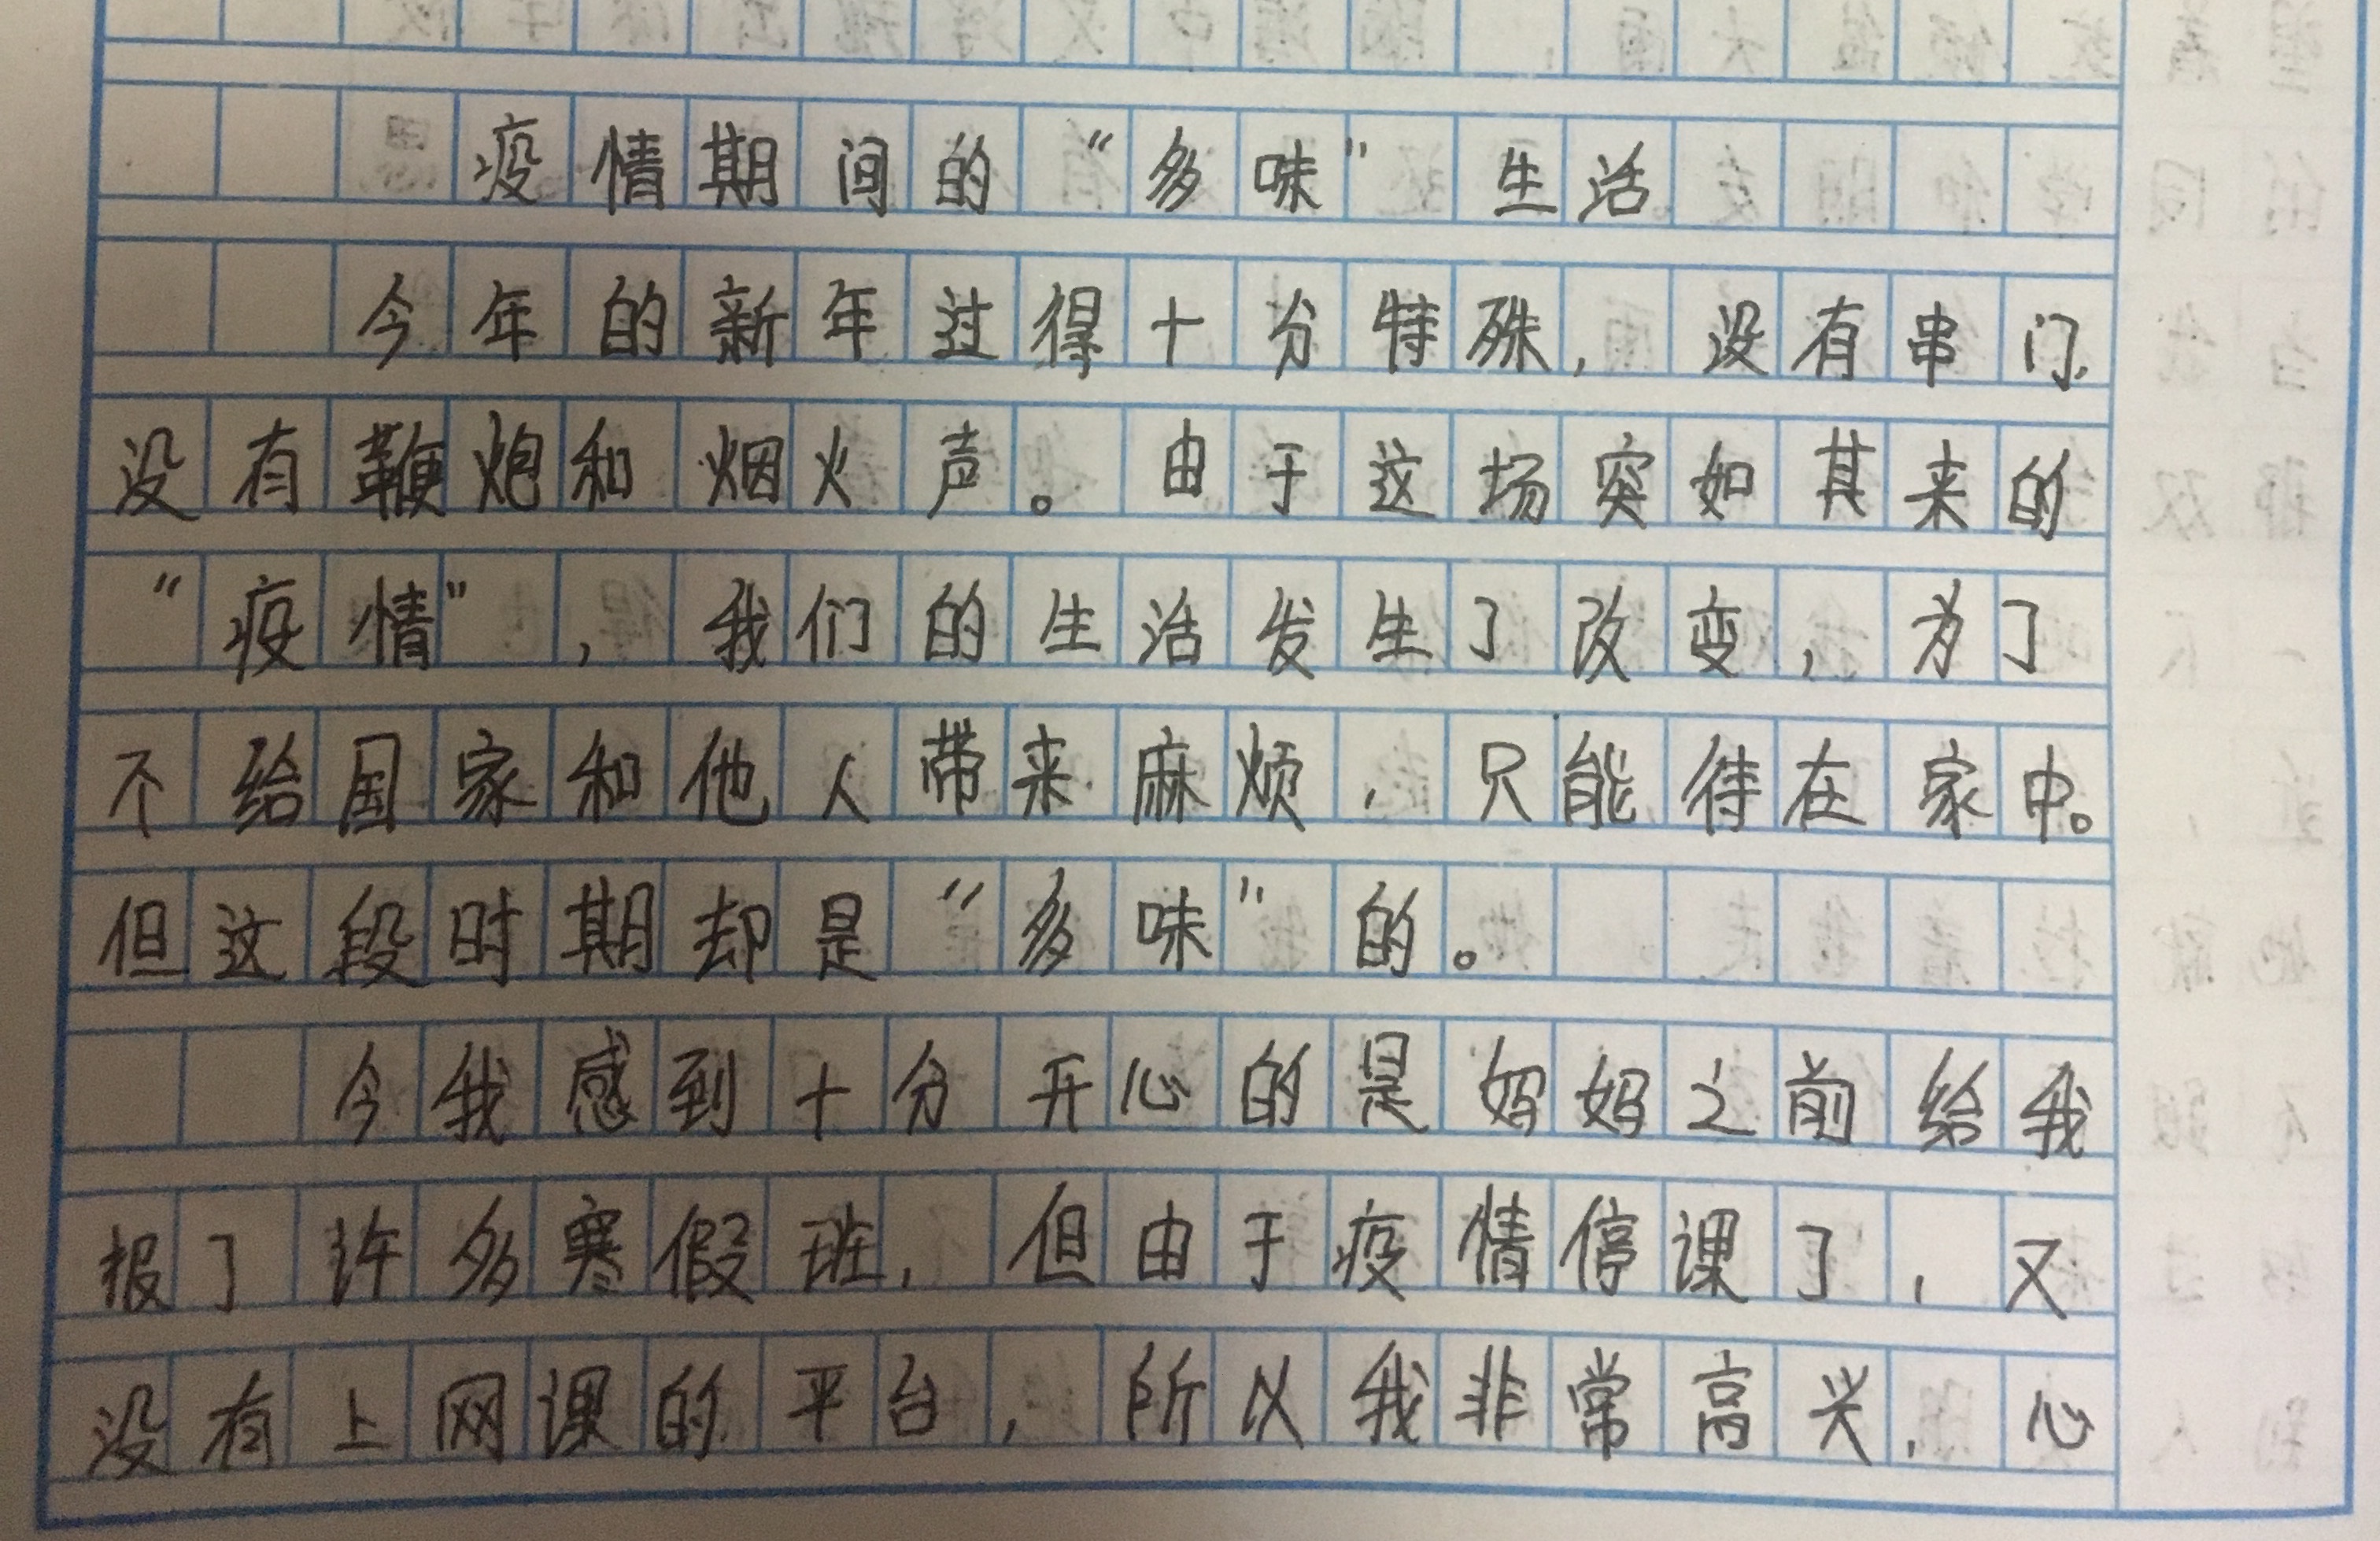 疫情期间的“多味”生活
今年的新年过得十分特殊，没有串门，
没有鞭炮和烟火声。由于这场突如其来的
“疫情”，我们的生活发生了改变，为了
不给国家和他人带来麻烦，只能待在家中。
但这段时期却是“多味”的。
今我感到十分开心的是妈妈之前给我
报了许多寒假班，但由于疫情停课了，又
没有上网课的平台，所以我非常高兴，心